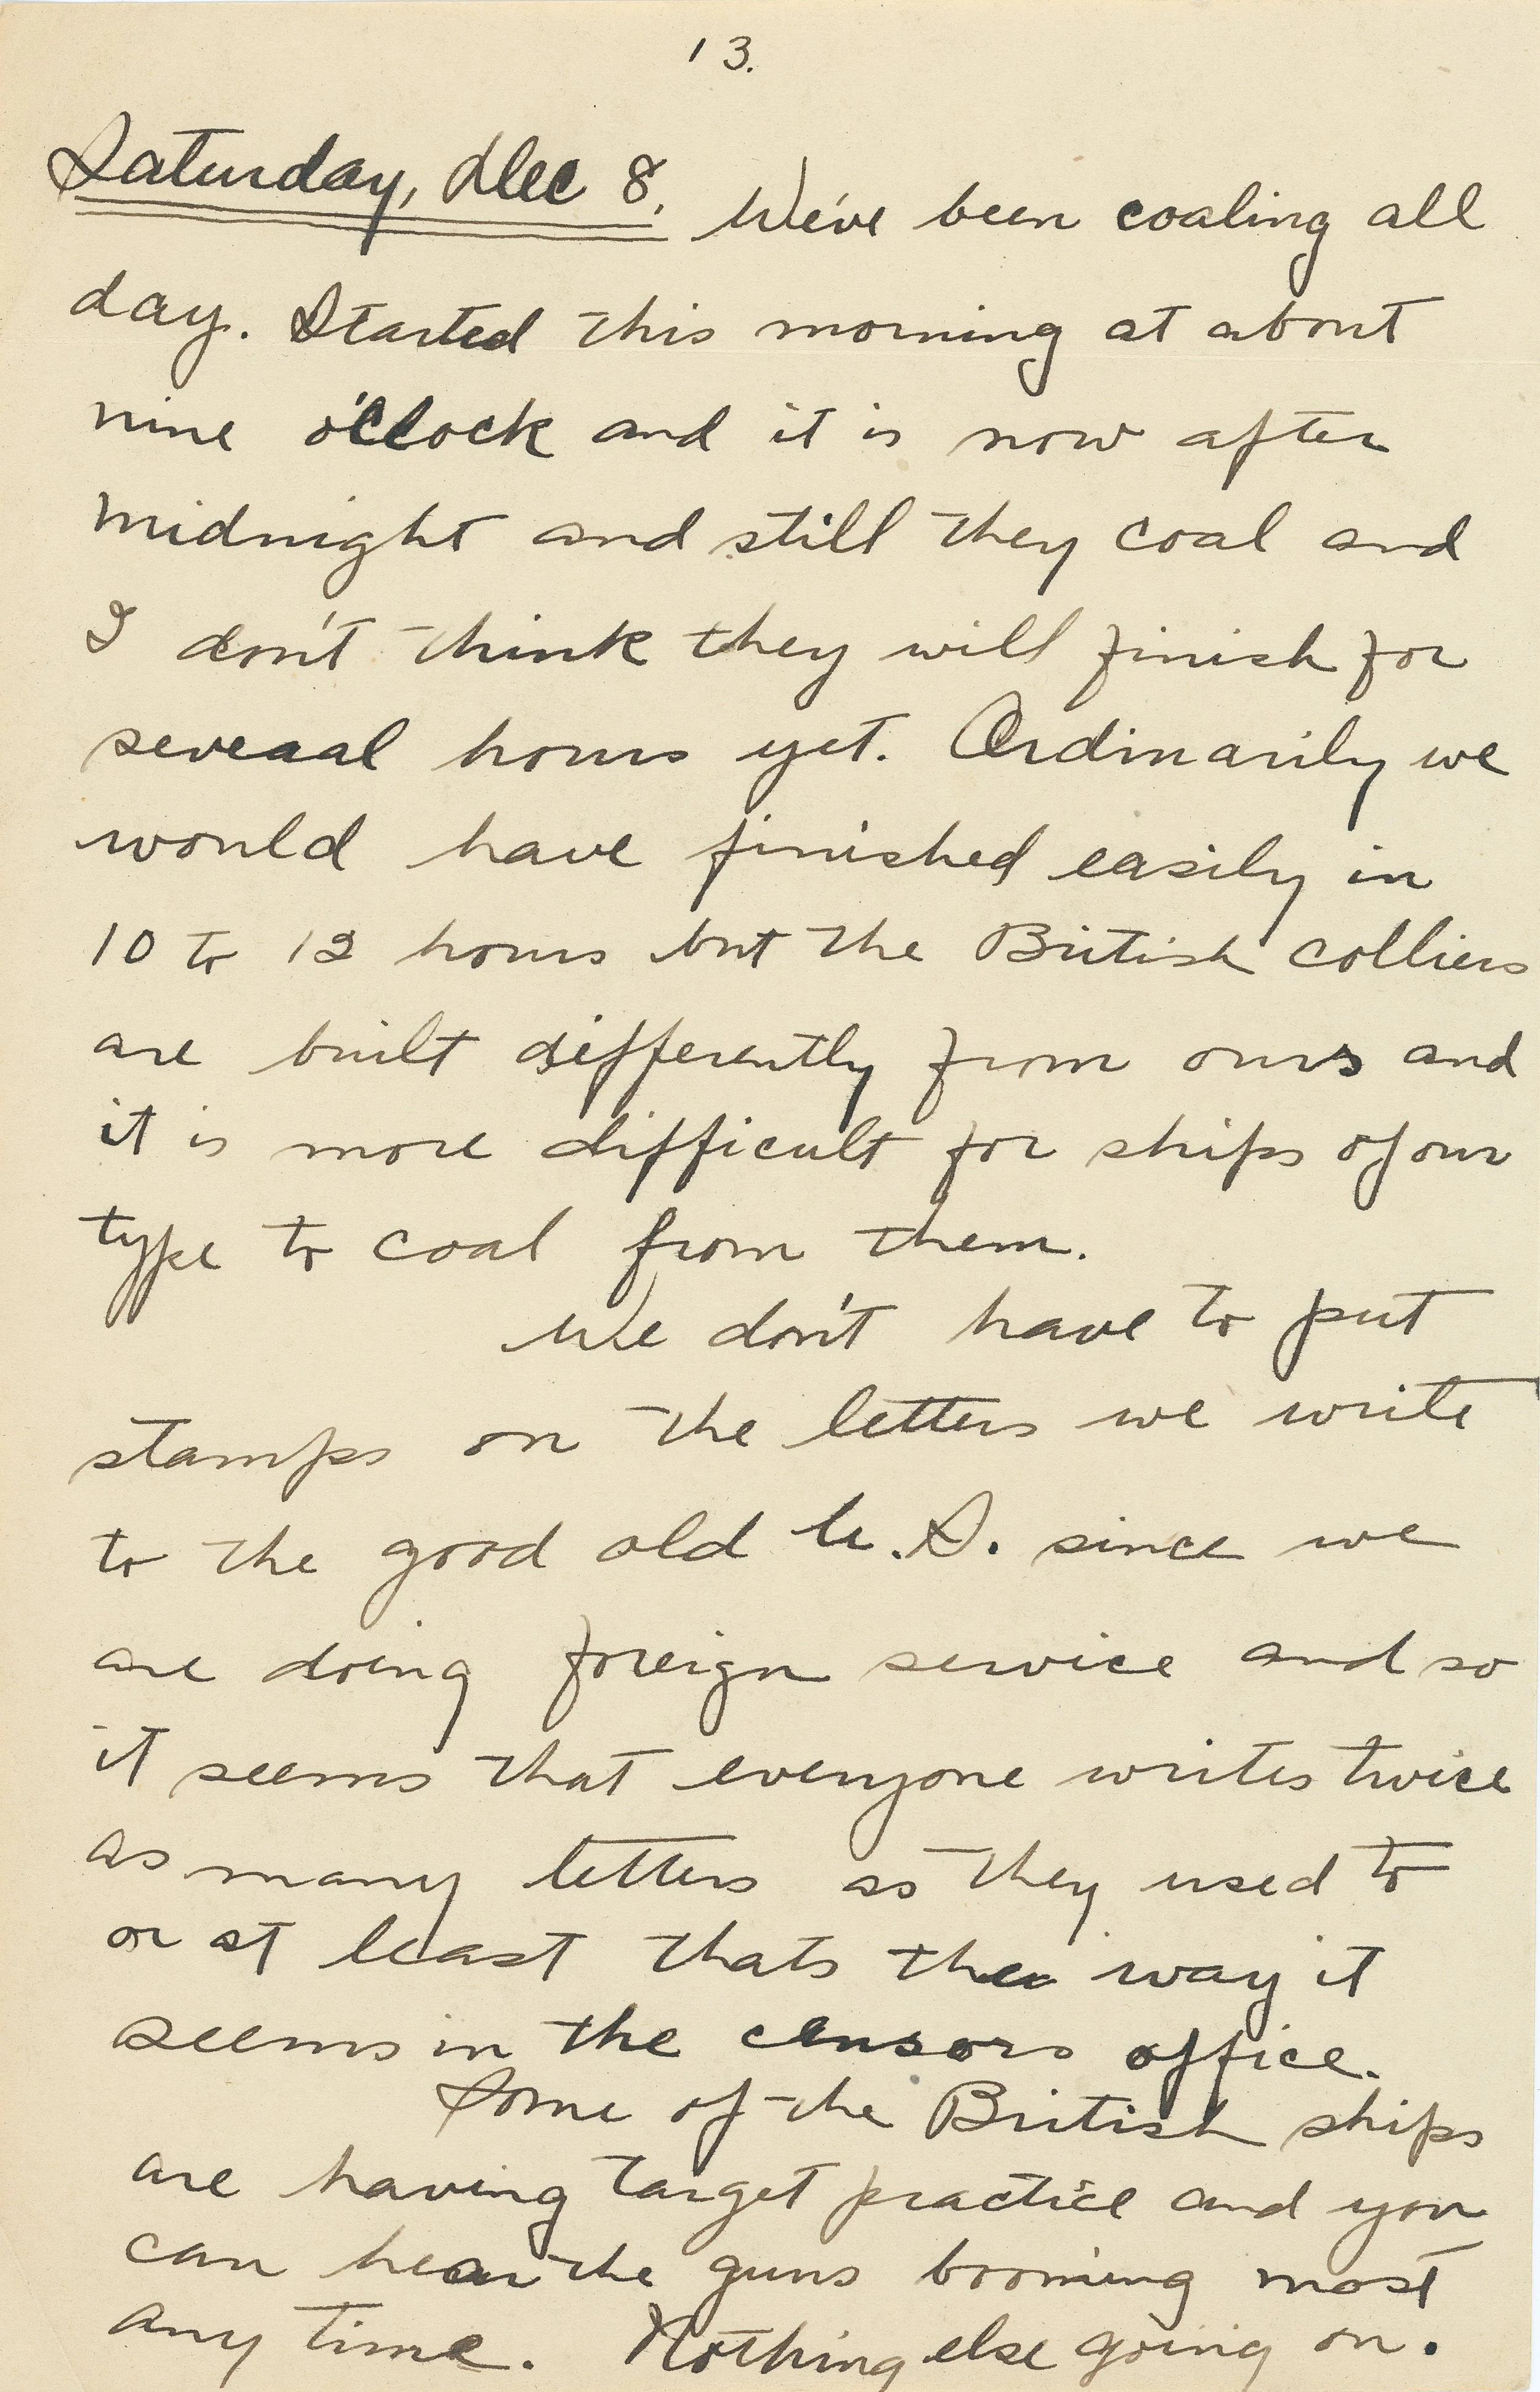 13.
Saturday, Dec 8. We've been coaling all
day. Started this morning at about
nine o'clock and it is now after
midnight and still they coal and
I don't think they will finish for
several hours yet. Ordinarily we
would have finished easily in
10 to 12 hours but the British colliers
are built differently from ours and
it is more difficult for ships of our
type to coal from them.
We don't have to put
stamps on the letters we write
to the good old U.S. since we
are doing foreign service and so
it seems that everyone writes twice
as many letters as they used to
or at least thats the way it
seems in the censors office.
Some of the British ships
are having target practice and you
can hear the guns booming most
any time. Nothing else going on.